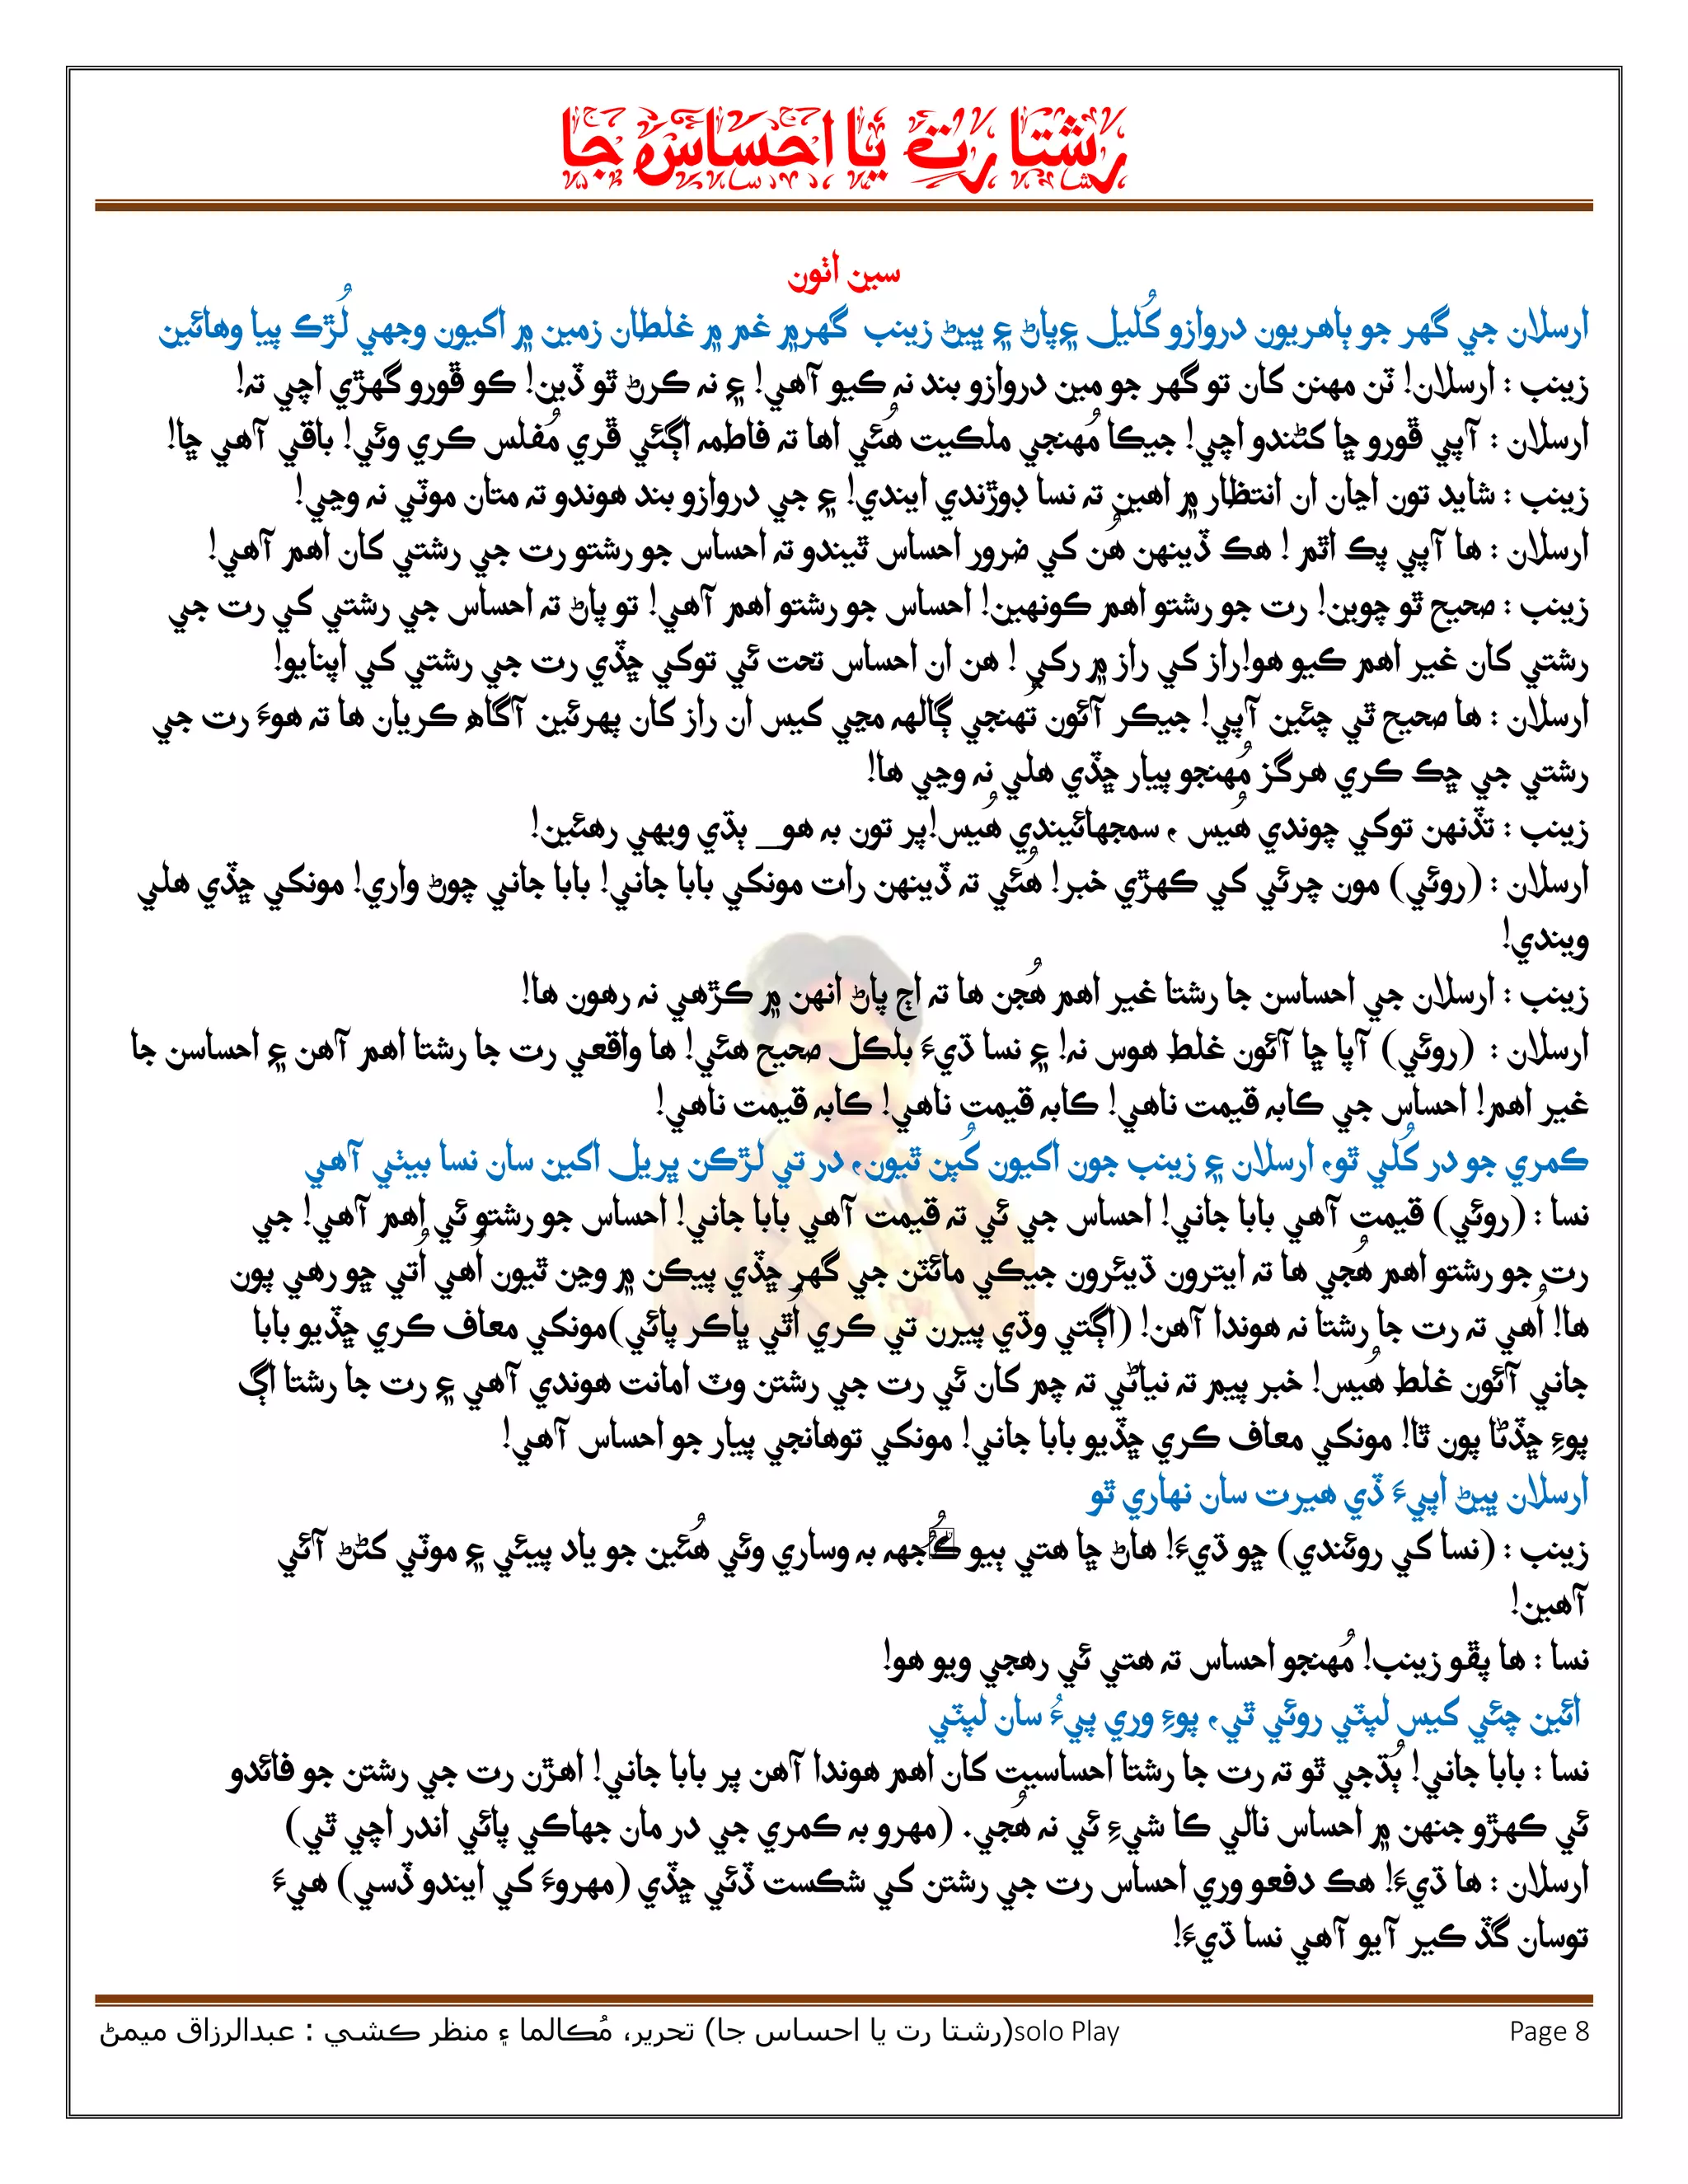 رشتا رت يا احساس جا
سين اٺون
ارسلان جي گهر جو ٻاهريون دروازو کُليل ۽پاڻ ۽ ڀيڻ زينب گهر۾ غم ۾ غلطان زمين ۾ اکيون وجهي لُڙڪ پيا وهائين
زينب : ارسلان! ٽن مهنن کان تو گهر جو مين دروازو بند نہ ڪيو آهي! ۽ نہ ڪرڻ ٿو ڏين! ڪو ڦورو گهڙي اچي تہ!
ارسلان : آپي ڦورو ڇا کڻندو اچي! جيڪا مُهنجي ملڪيت هُئي اها تہ فاطمہ اڳئي ڦري مُفلس ڪري وئي! باقي آهي ڇا!
زينب : شايد تون اڃان ان انتظار ۾ اهين تہ نسا ڊوڙندي ايندي! ۽ جي دروازو بند هوندو تہ متان موٽي نہ وڃي!
ارسلان : ها آپي پڪ اٿم ! هڪ ڏينهن هُن کي ضرور احساس ٿيندو تہ احساس جو رشتو رت جي رشتي کان اهم آهي!
زينب : صحيح ٿو چوين! رت جو رشتو اهم ڪونهين! احساس جو رشتو اهم آهي! تو پاڻ تہ احساس جي رشتي کي رت جي
رشتي کان غير اهم ڪيو هو!راز کي راز ۾ رکي ! هن ان احساس تحت ئي توکي ڇڏي رت جي رشتي کي اپنايو!
ارسلان : ها صحيح ٿي چئين آپي! جيڪر آئون تُهنجي ڳالهہ مڃي کيس ان راز کان پهرئين آگاھ ڪريان ها تہ هوءَ رت جي
رشتي جي ڇڪ ڪري هرگز مُهنجو پيار ڇڏي هلي نہ وڃي ها!
زينب : تڏنهن توکي چوندي هُيس ، سمجهائيندي هُيس!پر تون بہ هو_ ٻڌي ويهي رهئين!
ارسلان : (روئي) مون چرئي کي ڪهڙي خبر! هُئي تہ ڏينهن رات مونکي بابا جاني! بابا جاني چوڻ واري! مونکي ڇڏي هلي
ويندي!
زينب : ارسلان جي احساسن جا رشتا غير اهم هُجن ها تہ اڄ پاڻ انهن ۾ ڪڙهي نہ رهون ها!
ارسلان : (روئي) آپا ڇا آئون غلط هوس نہ! ۽ نسا ڌيءَ بلڪل صحيح هئي! ها واقعي رت جا رشتا اهم آهن ۽ احساسن جا
غير اهم! احساس جي ڪابہ قيمت ناهي! ڪابہ قيمت ناهي! ڪابہ قيمت ناهي!
ڪمري جو در کُلي ٿو، ارسلان ۽ زينب جون اکيون کُپن ٿيون، در تي لڙڪن ڀريل اکين سان نسا بيٺي آهي
نسا : (روئي) قيمت آهي بابا جاني! احساس جي ئي تہ قيمت آهي بابا جاني! احساس جو رشتو ئي اهم آهي! جي
رت جو رشتو اهم هُجي ها تہ ايترون ڌيئرون جيڪي مائٽن جي گهر ڇڏي پيڪن ۾ وڃن ٿيون اُهي اُتي ڇو رهي پون
ها! اُهي تہ رت جا رشتا نہ هوندا آهن! (اڳتي وڌي پيرن تي ڪري اُٿي ڀاڪر پائي)مونکي معاف ڪري ڇڏيو بابا
جاني آئون غلط هُيس! خبر پيم تہ نياڻي تہ ڄم کان ئي رت جي رشتن وٽ امانت هوندي آهي ۽ رت جا رشتا اڳ
پوءِ ڇڏڻا پون ٿا! مونکي معاف ڪري ڇڏيو بابا جاني! مونکي توهانجي پيار جو احساس آهي!
ارسلان ڀيڻ اپيءَ ڏي هيرت سان نهاري ٿو
زينب : (نسا کي روئندي) ڇو ڌيءَ! هاڻ ڇا هتي ٻيو ڪُجهہ بہ وساري وئي هُئين جو ياد پيئي ۽ موٽي کڻڻ آئي
آهين!
نسا : ها پڦو زينب! مُهنجو احساس تہ هتي ئي رهجي ويو هو!
ائين چئي کيس لپٽي روئي ٿي، پوءِ وري پيءُ سان لپٽي
نسا : بابا جاني! ٻُڌجي ٿو تہ رت جا رشتا احساسيت کان اهم هوندا آهن پر بابا جاني! اهڙن رت جي رشتن جو فائدو
ئي ڪهڙو جنهن ۾ احساس نالي ڪا شيءِ ئي نہ هُجي. (مهرو بہ ڪمري جي در مان جهاڪي پائي اندر اچي ٿي)
ارسلان : ها ڌيءَ! هڪ دفعو وري احساس رت جي رشتن کي شڪست ڏئي ڇڏي (مهروءَ کي ايندو ڏسي) هيءَ
توسان گڏ ڪير آيو آهي نسا ڌيءَ!
solo Play(رشتا رت يا احساس جا) تحرير، مُڪالما ۽ منظر ڪشي : عبدالرزاق ميمڻ
Page 8